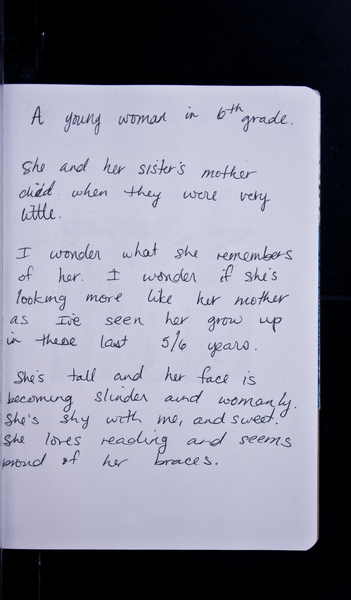 A young woman in 6th grade.
She and her sister's mother
died when they were very
little.
I wonder what she remembers
of her. I wonder if she's
looking more like her mother
as I've seen her grow up
in these last 5/6 years.
She's tall and her face is
becoming slinder and womanly.
She's shy with me, and sweet.
She loves reading and seems
proud of her braces.